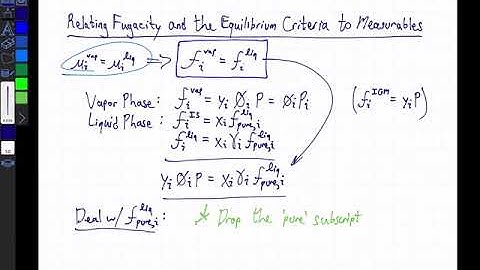 Relating Fugacity and the Equilibrium Criteria to Measurables
μᵢᵛᵃᵖ = μᵢˡⁱq ⟹ fᵢᵛᵃᵖ = fᵢˡⁱq
Vapor Phase: fᵢᵛᵃᵖ = yᵢ Øᵢ P = ØᵢPᵢ (fᵢᴵᴳᴹ = yᵢP)
Liquid Phase: fᵢᴵˢ = xᵢ f_pure,i^liq
fᵢˡⁱq = xᵢ γᵢ f_pure,i^liq
yᵢ Øᵢ P = xᵢ γᵢ f_pure,i^liq
Deal w/ f_pure,i^liq: * Drop the 'pure' subscript